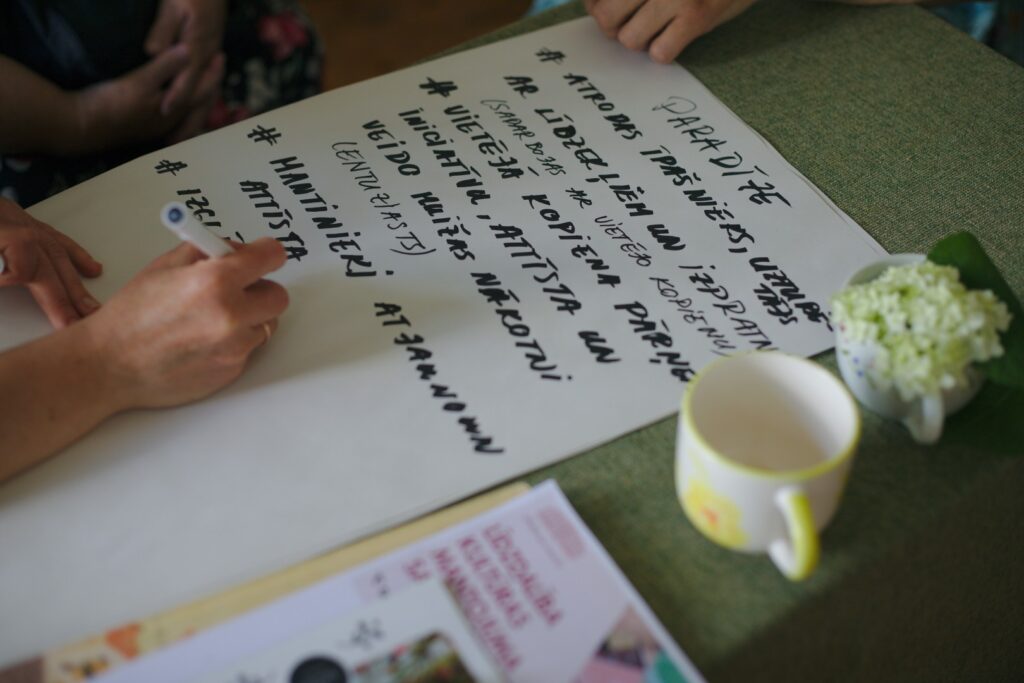 PARADĪZE
# ATRODAS ĪPAŠNIEKS, UZTURĒ
TĀJS
AR LĪDZEKĻIEM UN IZPRATN
(SADARBOJAS AR VIETĒJO KOPIENU)
# VIETĒJĀ KOPIENA PĀRŅE
INICIATĪVU, ATTĪSTA UN
VEIDO MUIŽAS NĀKOTNI
(ENTUZIASTS)
# MANTINIEKI ATJAUNO UN
ATTĪSTA
# IZGL
LĪDZDALĪBA
KULTŪRAS
MANTOJUMA